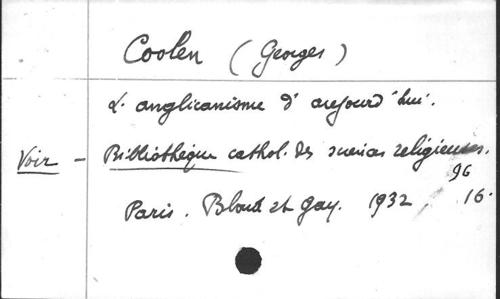 Coolen (Georges)
L'anglicanisme d'aujourd'hui.
Voir - Bibliothèque cathol. des sciences religieuses.
96
Paris. Bloud et Gay. 1932 16.